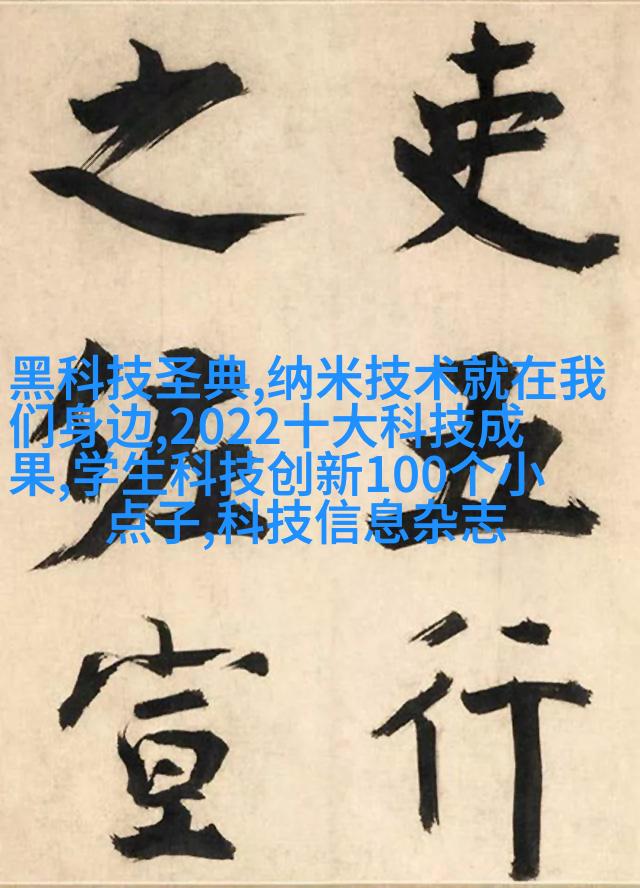 吏五行
之佐宣
黑科技圣典,纳米技术就在我
们身边,2022十大科技成
果,学生科技创新100个小
点子,科技信息杂志